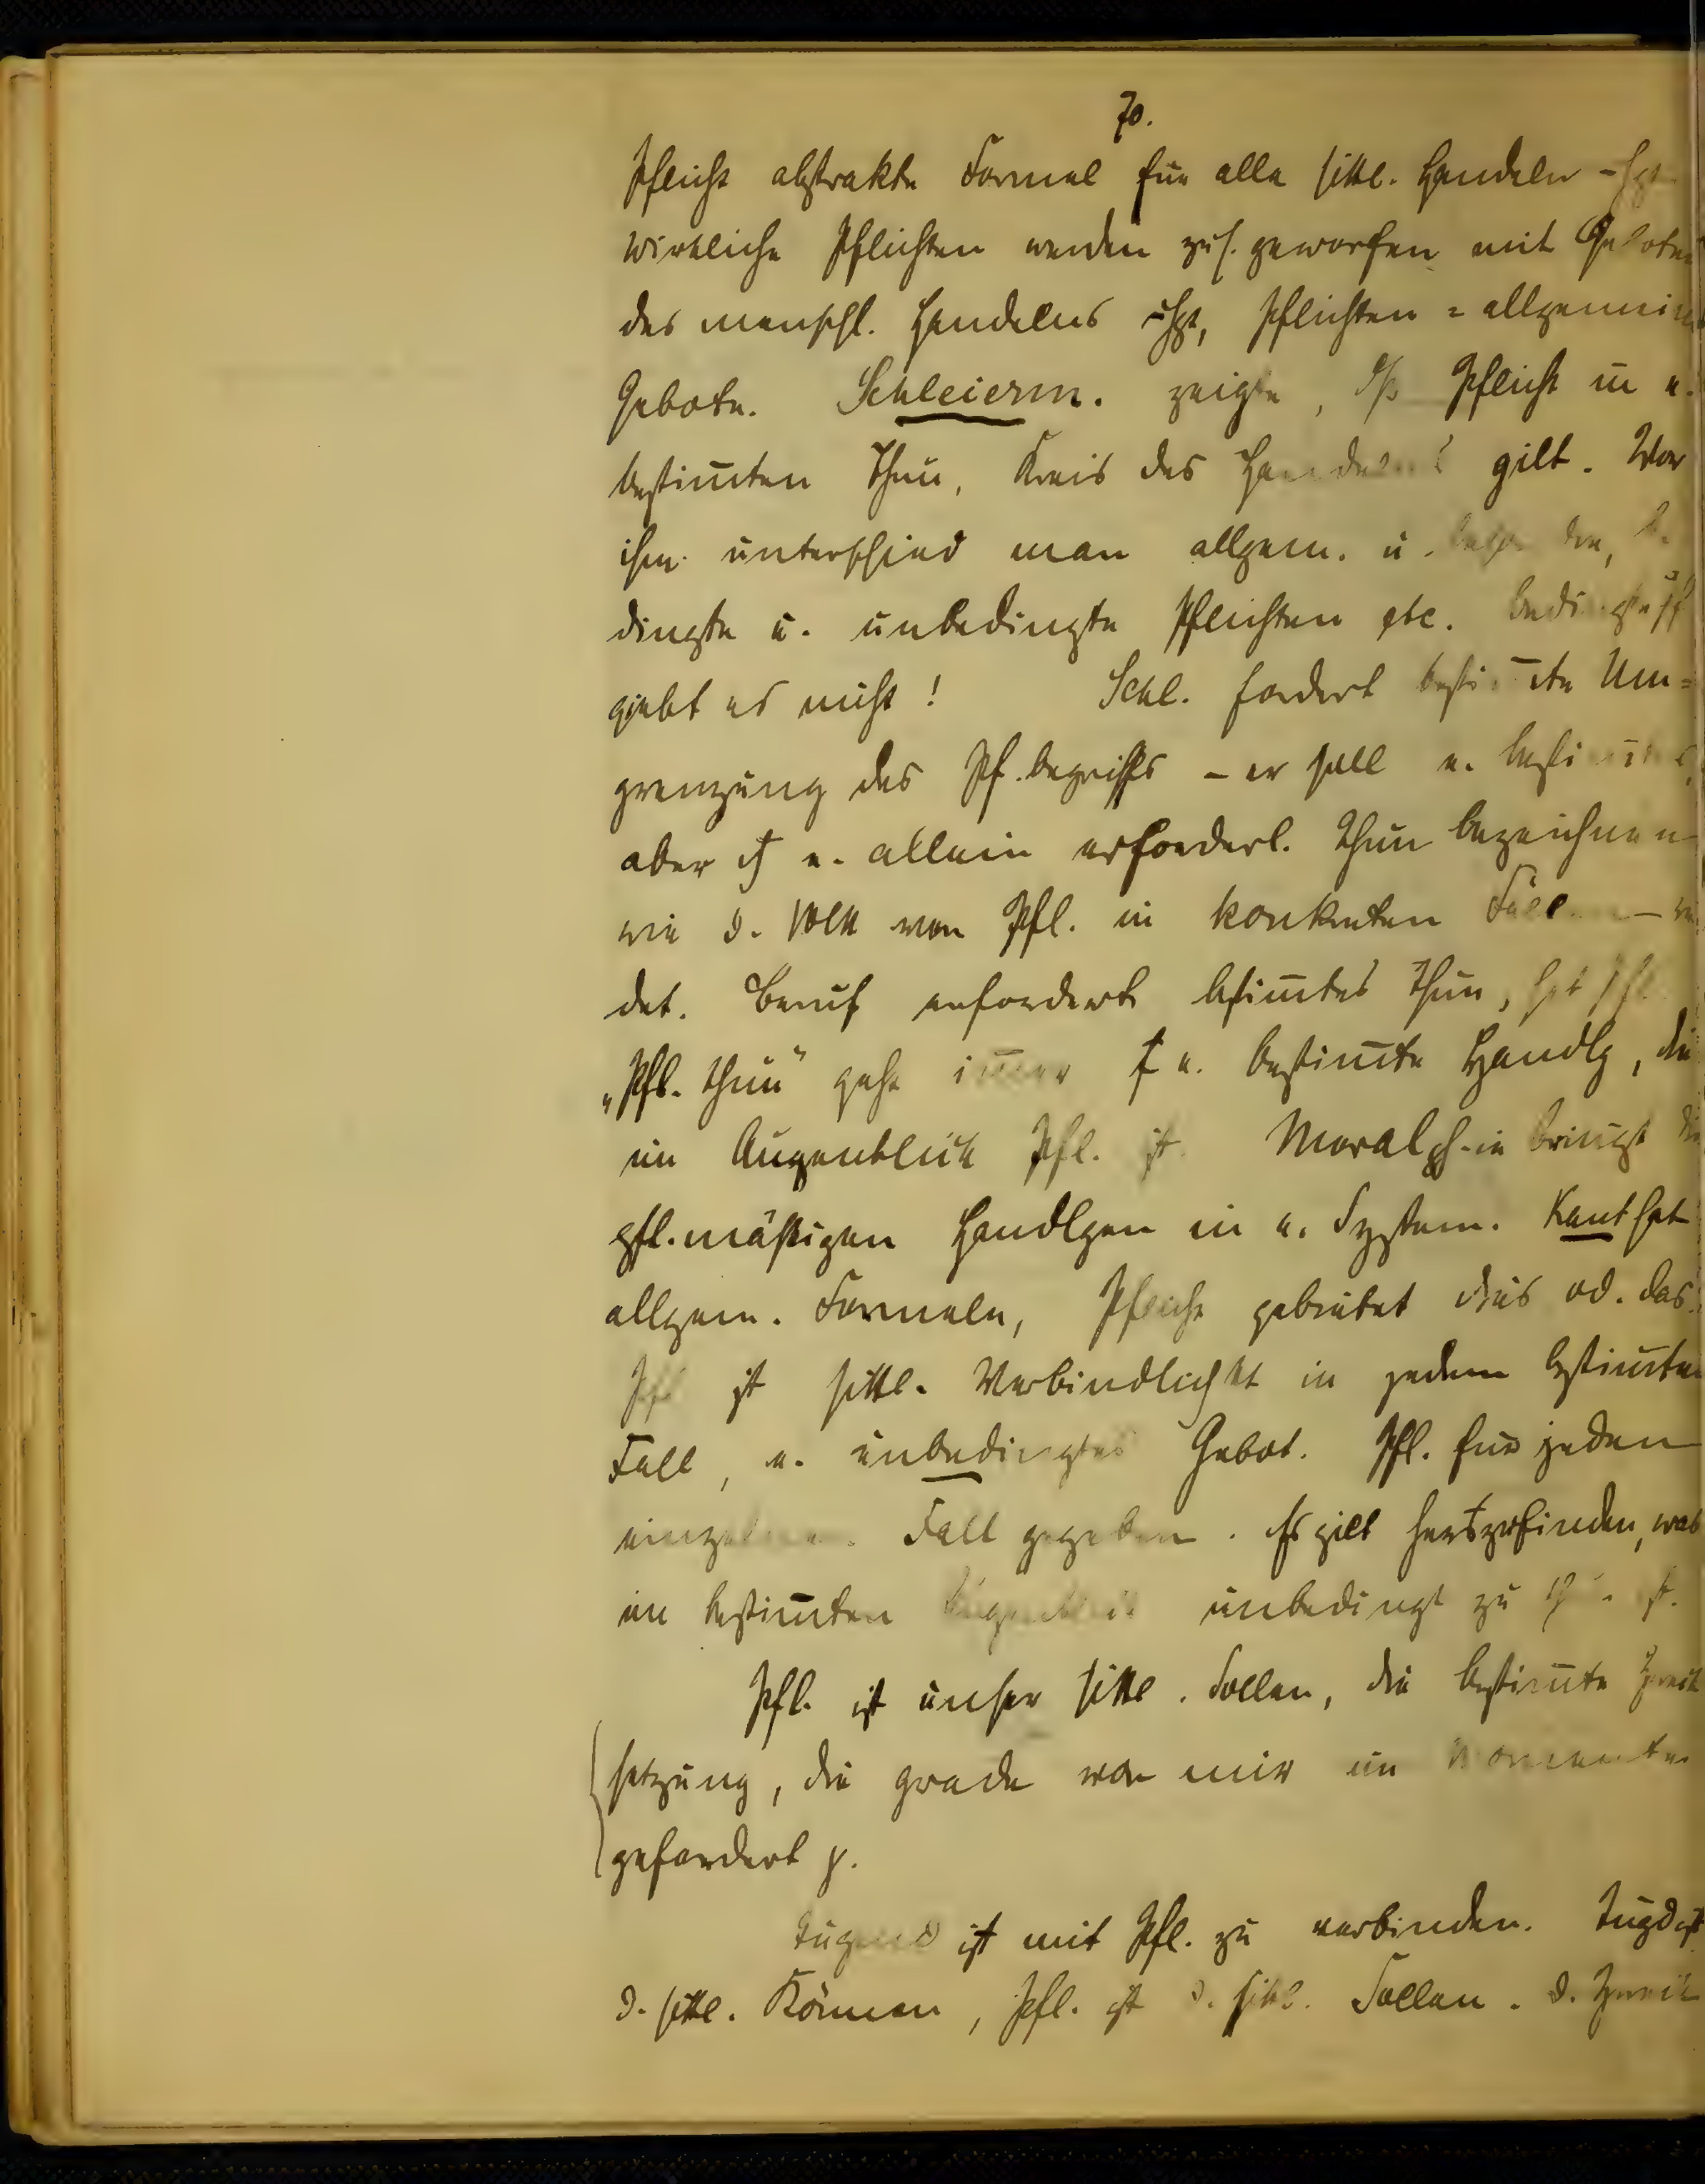 70.
Pflicht abstrakte Formel für alle sittl. Handeln -
wirkliche Pflichten werden zus. geworfen mit Geboten
des menschl. Handelns Pflichten = allgemein
Gebote. Schleierm. zeigte, Pflicht in e.
bestimten Thun, Kreis des Handelns gilt. Vor
ihm unterschied man allgem. u.
dingte u. unbedingte Pflichten etc. bedingte
giebt es nicht! Schl. fordert bestimte Um=
grenzung des Pf.begriffs - er soll e. bestimtes,
aber e. allein erforderl. Thun bezeichnen
wie d. Volk von Pfl. in konkreten Fällen -
det. Beruf erfordert bestimtes Thun, hat
„Pfl. thun" geht immer e. bestimte Handlg, die
im Augenblick Pfl. ist. Moral bringt die
pfl.mäßigen Handlgen in e. System. Kant hat
allgem. Formeln, Pflicht gebietet dies od. das.
Pfl. ist sittl. Verbindlichkt in jedem bestimten
Fall, e. unbedingtes Gebot. Pfl. für jeden
einzelnen Fall gegeben. Es gilt herauszufinden, was
im bestimten Augenblick unbedingt zu ist.
Pfl. ist unser sittl. Sollen, die bestimte Zweck
setzung, die grade von mir im Momente
gefordert
Tugend ist mit Pfl. zu verbinden. Tugd ist
d. sittl. Können, Pfl. ist d. sittl. Sollen. d. Zweck